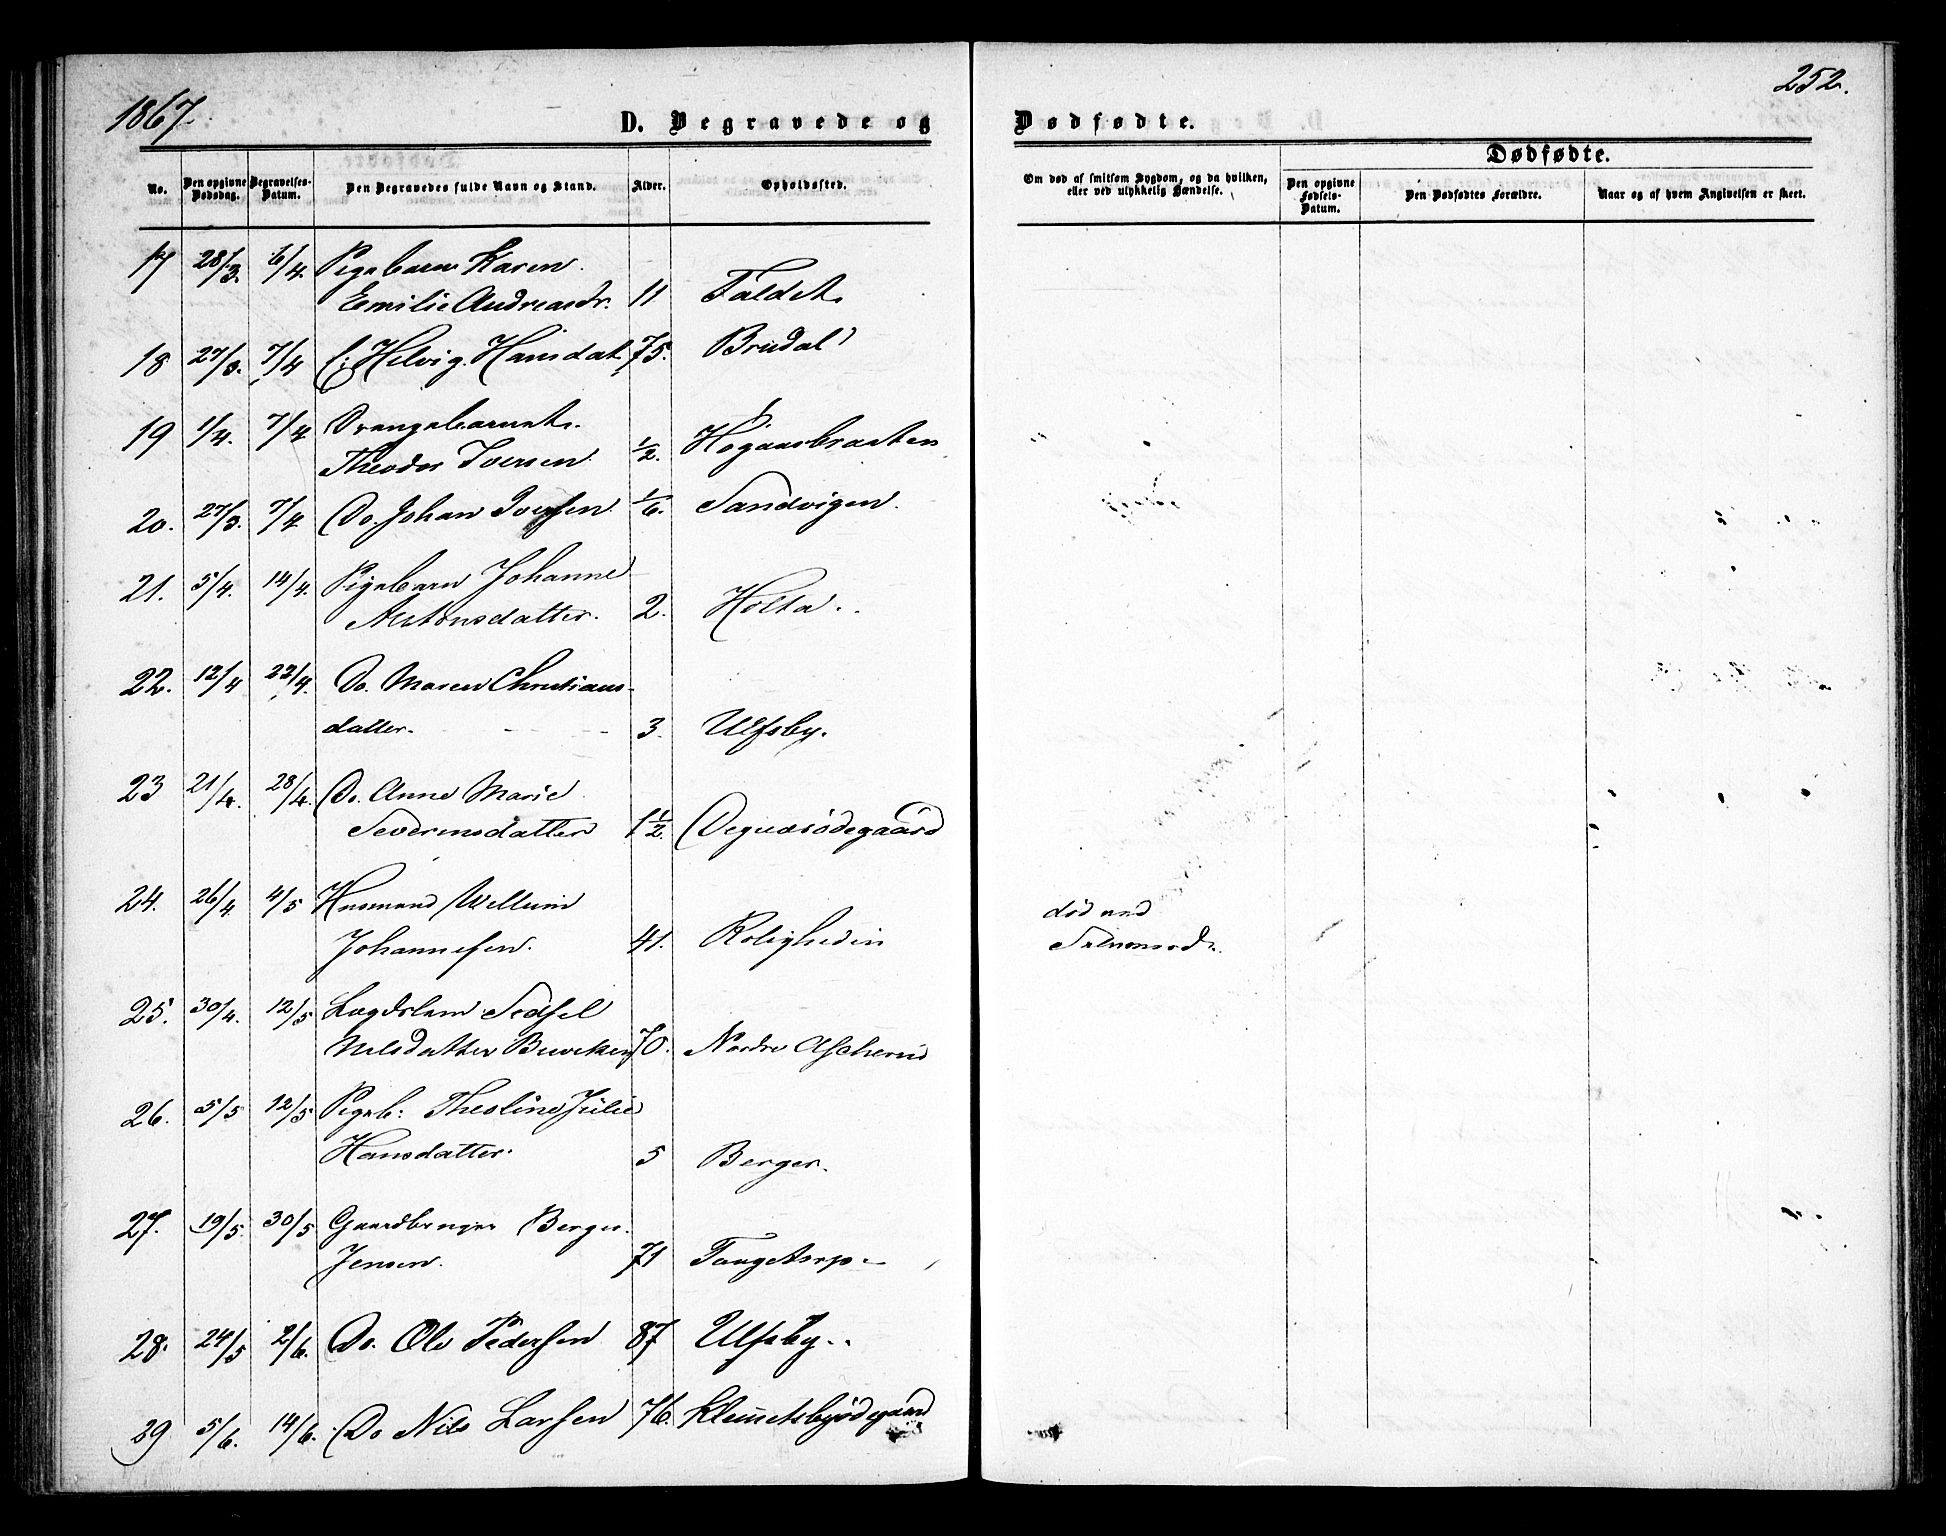 1867.
252.
D. Begravede og
Dødfødte.
No.
Den opgivne Dødsdag.
Begravelses-Datum.
Den Begravedes fulde Navn og Stand.
Alder.
Opholdssted.
Om død af smitsom Sygdom, og da hvilken, eller ved ulykkelig Hændelse.
Dødfødte.
Den opgivne Fødsels-Datum.
Den Dødfødtes Forældre.
Naar og af hvem Angivelsen er skeet.
17 28/3. 6/4. Pigebarn Karen
Emilie Andreasdr. 11 Faldet
18 27/3. 7/4 Helvig Hansdat. 75. Brudal
19 1/4. 7/4 Drengebarnet
Theodor Iversen 1/2. Høgaasbraaten
20. 27/3. 7/4 Do. Johan Iversen 1/6. Sandvigen.
21. 5/4. 14/4. Pigebarn Johanne
Antonsdatter. 2. Holta.
22. 12/4 22/4. Do. Maren Christians-
datter. 3. Ulfsby.
23 21/4. 28/4. Do. Anne Marie
Severinsdatter 1 1/2. Degnesødegaard
24. 26/4. 4/5 Husmand Wellum
Johannesen. 41. Roligheden
død ved
25. 30/4. 12/5 Lægdslem Sidsel
Nilsdatter 70. Nordre Ascherud
26. 5/5 12/5 Pigeb: Theoline Julie
Hansdatter. 5 Berger.
27. 19/5. 30/5 Gaardbruger Berger
Jensen. 71
28. 24/5 2/6. Do. Ole Pedersen 87 Ulfsby.
29 5/6. 14/6. Do Nils Larsen 76. Klemetsbyødegaard